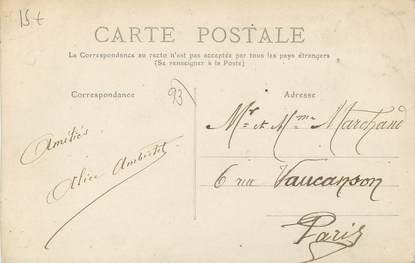 15+
CARTE POSTALE
La Correspondance au recto n'est pas acceptée par tous les pays étrangers
(Se renseigner à la Poste)
Correspondance
93
Adresse
Amitiés
Alice
Mr et Mme Marchand
6 rue Vaucanson
Paris